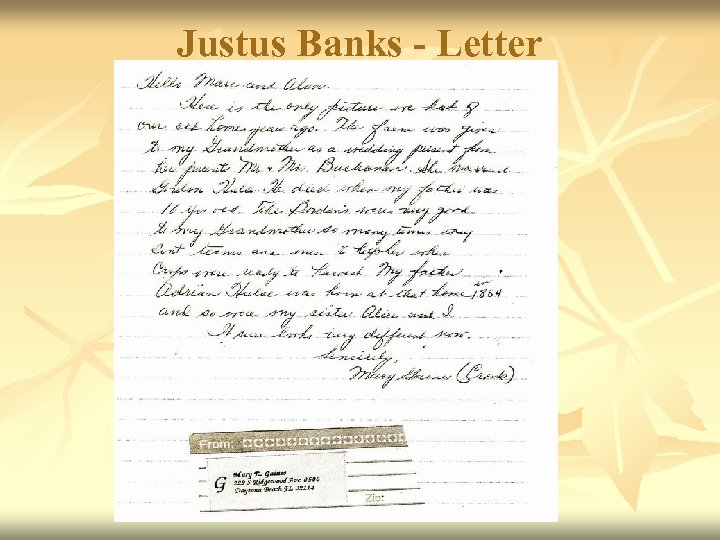 Justus Banks - Letter
Hello Mary and Alan
Here is the only picture we had of
our old home years ago. The farm was given
to my Grandmother as a wedding present from
her parents Mr. & Mrs. Buchanan. She married
Gordon Hulse. He died when my father was
11 yrs old. The Borden's were very good
to my Grandmother so many times they
sent teams and men to help her when
Crops were ready to harvest. My father
Adrian Hulse was born at that home in 1864
and so were my sister Alice and I.
It sure looks very different now.
Sincerely,
Mary
From:
G
Mary E. Gainer
229 S Ridgewood Ave #506
Daytona Beach FL 32114
Zip: